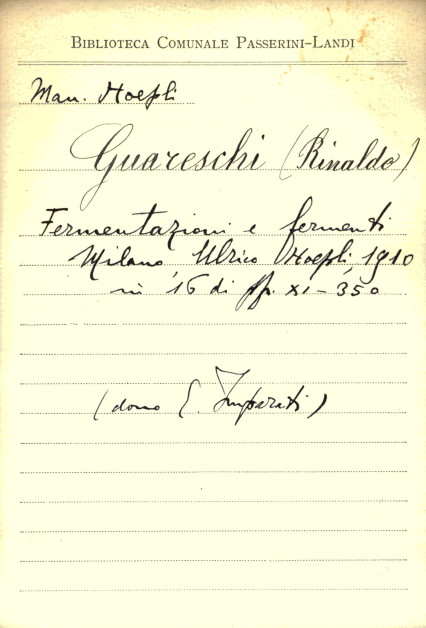 BIBLIOTECA COMUNALE PASSERINI-LANDI
Man. Hoepli
Guareschi (Rinaldo)
Fermentazioni e fermenti
Milano Ulrico Hoepli, 1910
in 16 di pp. XI-350
(dono E. Imparati)